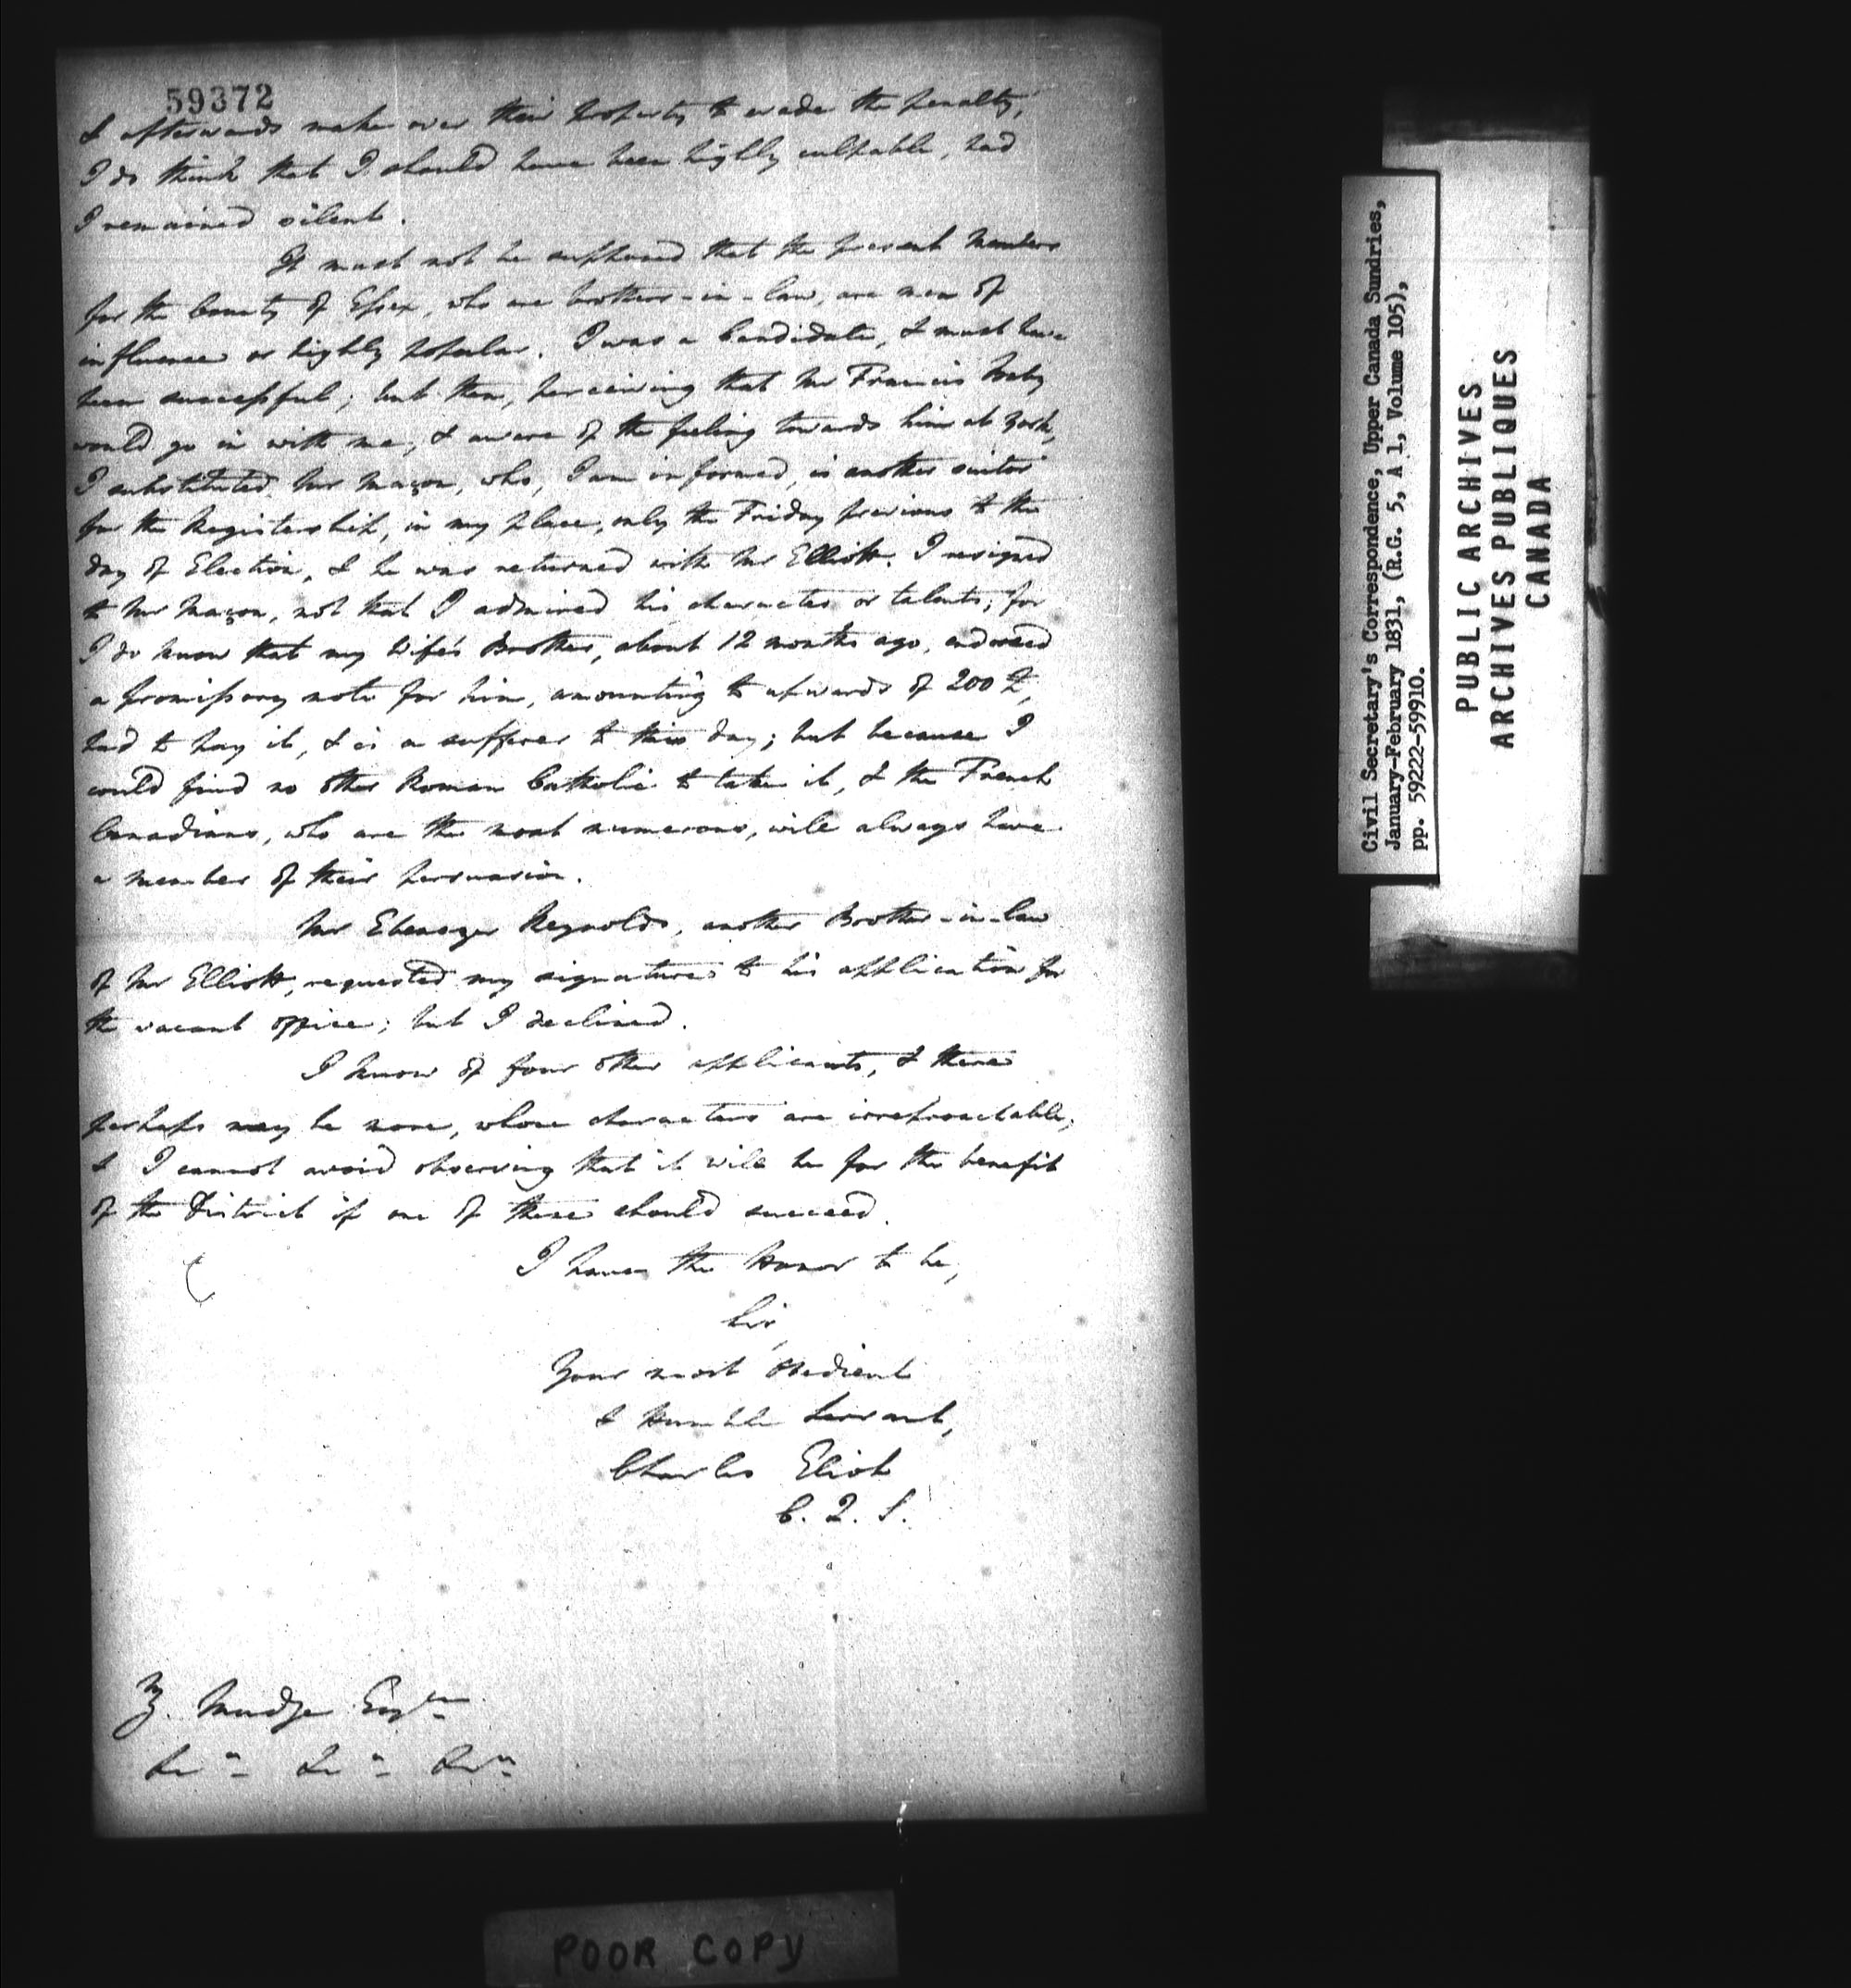 59372
& afterwards make over their property to evade the penalty,
I do think that I should have been highly culpable, had
I remained silent.
It must not be supposed that the present Members
for the County of Essex, who are brothers-in-law, are men of
influence or highly popular. I was a Candidate, & must have
been successful; but then, perceiving that Mr Francis Baby
would go in with me, & aware of the feeling towards him at York,
I substituted Mr Maçon, who, I am informed, is another suitor
for the Registership, in my place, only the Friday previous to the
day of Election, & he was returned with Mr Elliott. I resigned
to Mr Maçon, not that I admired his character or talents; for
I do know that my Wife's Brother, about 12 months ago, endorsed
a promissory note for him, amounting to upwards of 200 £,
had to pay it, & is a sufferer to this day; but because I
could find no other Roman Catholic to take it, & the French
Canadians, who are the most numerous, will always have
a member of their persuasion.
Mr Ebenezer Reynolds, another Brother-in-law
of Mr Elliott, requested my signature to his application for
the vacant office; but I declined.
I know of four other applicants, & there
perhaps may be more, whose characters are irreproachable;
& I cannot avoid observing that it will be for the benefit
of the District if one of these should succeed.
I have the Honor to be,
Sir,
Your most Obedient
& Humble Servant,
Charles Eliot
C. Q. S.
Z. Mudge Esqre
Civil Secretary's Correspondence, Upper Canada Sundries,
January-February 1831, (R.G. 5, A 1, Volume 105),
pp. 59222-59910.
PUBLIC ARCHIVES
ARCHIVES PUBLIQUES
CANADA
POOR COPY